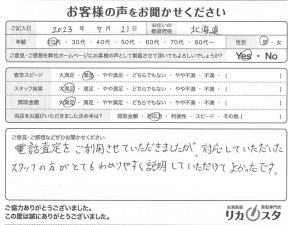 お客様の声をお聞かせください
ご記入日 2023年 7月 21日 お住いの都道府県 北海道
年齢 20代・30代・40代・50代・60代・70代・80代〜 性別 男・女
ご意見・ご感想を弊社ホームページにお客様の声として掲載させて頂いてもよろしいでしょうか? Yes・No
査定スピード 大満足・満足・やや満足・どちらでもない・やや不満・不満・( )
スタッフ接客 大満足・満足・やや満足・どちらでもない・やや不満・不満・( )
買取金額 大満足・満足・やや満足・どちらでもない・やや不満・不満・( )
当店をお選びいただきました決め手は? 買取金額・対応・利便性・スピード・その他( )
ご意見・ご感想などぜひお聞かせください
電話査定をご利用させていただきましたが、対応していただいた
スタッフの方がとてもわかりやすく説明していただけてよかったです。
ご協力ありがとうございました。
この度は誠にありがとうございました。
お酒高価買取専門店
リカスタ